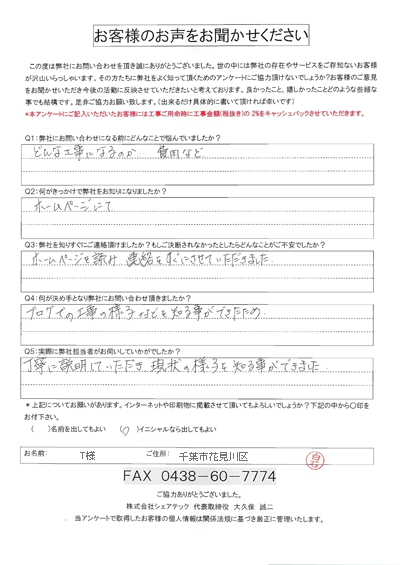 お客様のお声をお聞かせください
この度は弊社にお問い合わせを頂き誠にありがとうございました。世の中には弊社の存在やサービスをご存知ないお客様
が沢山いらっしゃいます。その方たちに弊社をよく知って頂くためのアンケートにご協力頂けないでしょうか?お客様のご意見
をお聞かせいただき今後の活動に反映させていただきたいと考えております。良かったこと、嬉しかったことどのような些細な
事でも結構です。是非ご協力お願い致します。(出来るだけ具体的に書いて頂ければ幸いです)
*本アンケートにご記入いただいたお客様には工事ご用命時に工事金額(税抜き)の 2%をキャッシュバックさせていただきます。
Q1:弊社にお問い合わせになる前にどんなことで悩んでいましたか?
どんな工事になるのか 費用など
Q2:何がきっかけで弊社をお知りになりましたか?
ホームページにて
Q3:弊社を知りすぐにご連絡頂けましたか?もしご決断されなかったとしたらどんなことがご不安でしたか?
ホームページを読み 連絡をすぐにさせていただきました
Q4:何が決め手となり弊社にお問い合わせ頂きましたか?
ブログでの工事の様子などを知る事ができたため
Q5:実際に弊社担当者がお伺いしていかがでしたか?
丁寧に説明していただき 現状の様子を知る事ができました
*上記についてお願いがあります。インターネットや印刷物に掲載させて頂いてもよろしいでしょうか?下記の中から〇印を
お付け下さい。
( )名前を出してもよい (○)イニシャルなら出してもよい
お名前: T様 ご住所: 千葉市花見川区
FAX 0438-60-7774
ご協力ありがとうございました。
株式会社シェアテック 代表取締役 大久保 誠二
当アンケートで取得したお客様の個人情報は関係法規に基づき厳正に管理いたします。